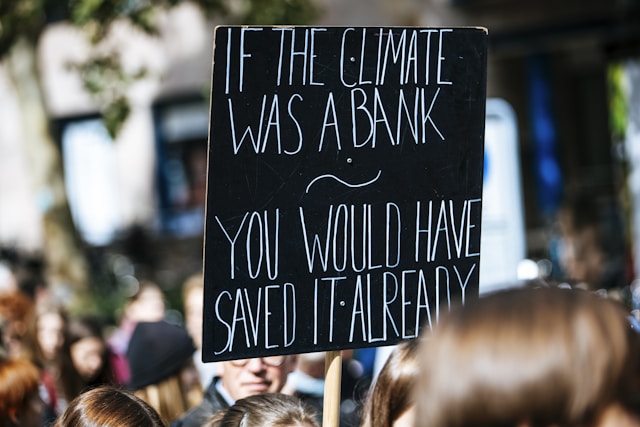 IF THE CLIMATE
WAS A BANK
~
YOU WOULD HAVE
SAVED IT ALREADY